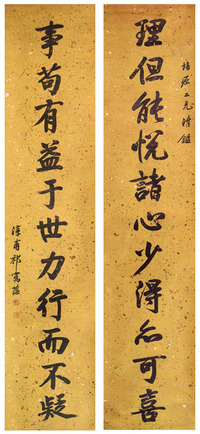 二兄清鑑
理但能悦諸心少得亦可喜
事苟有益于世力行而不疑
淳甫祁寯藻